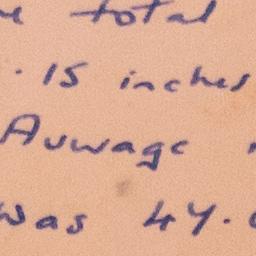 total
.15 inches
Average
was 47.